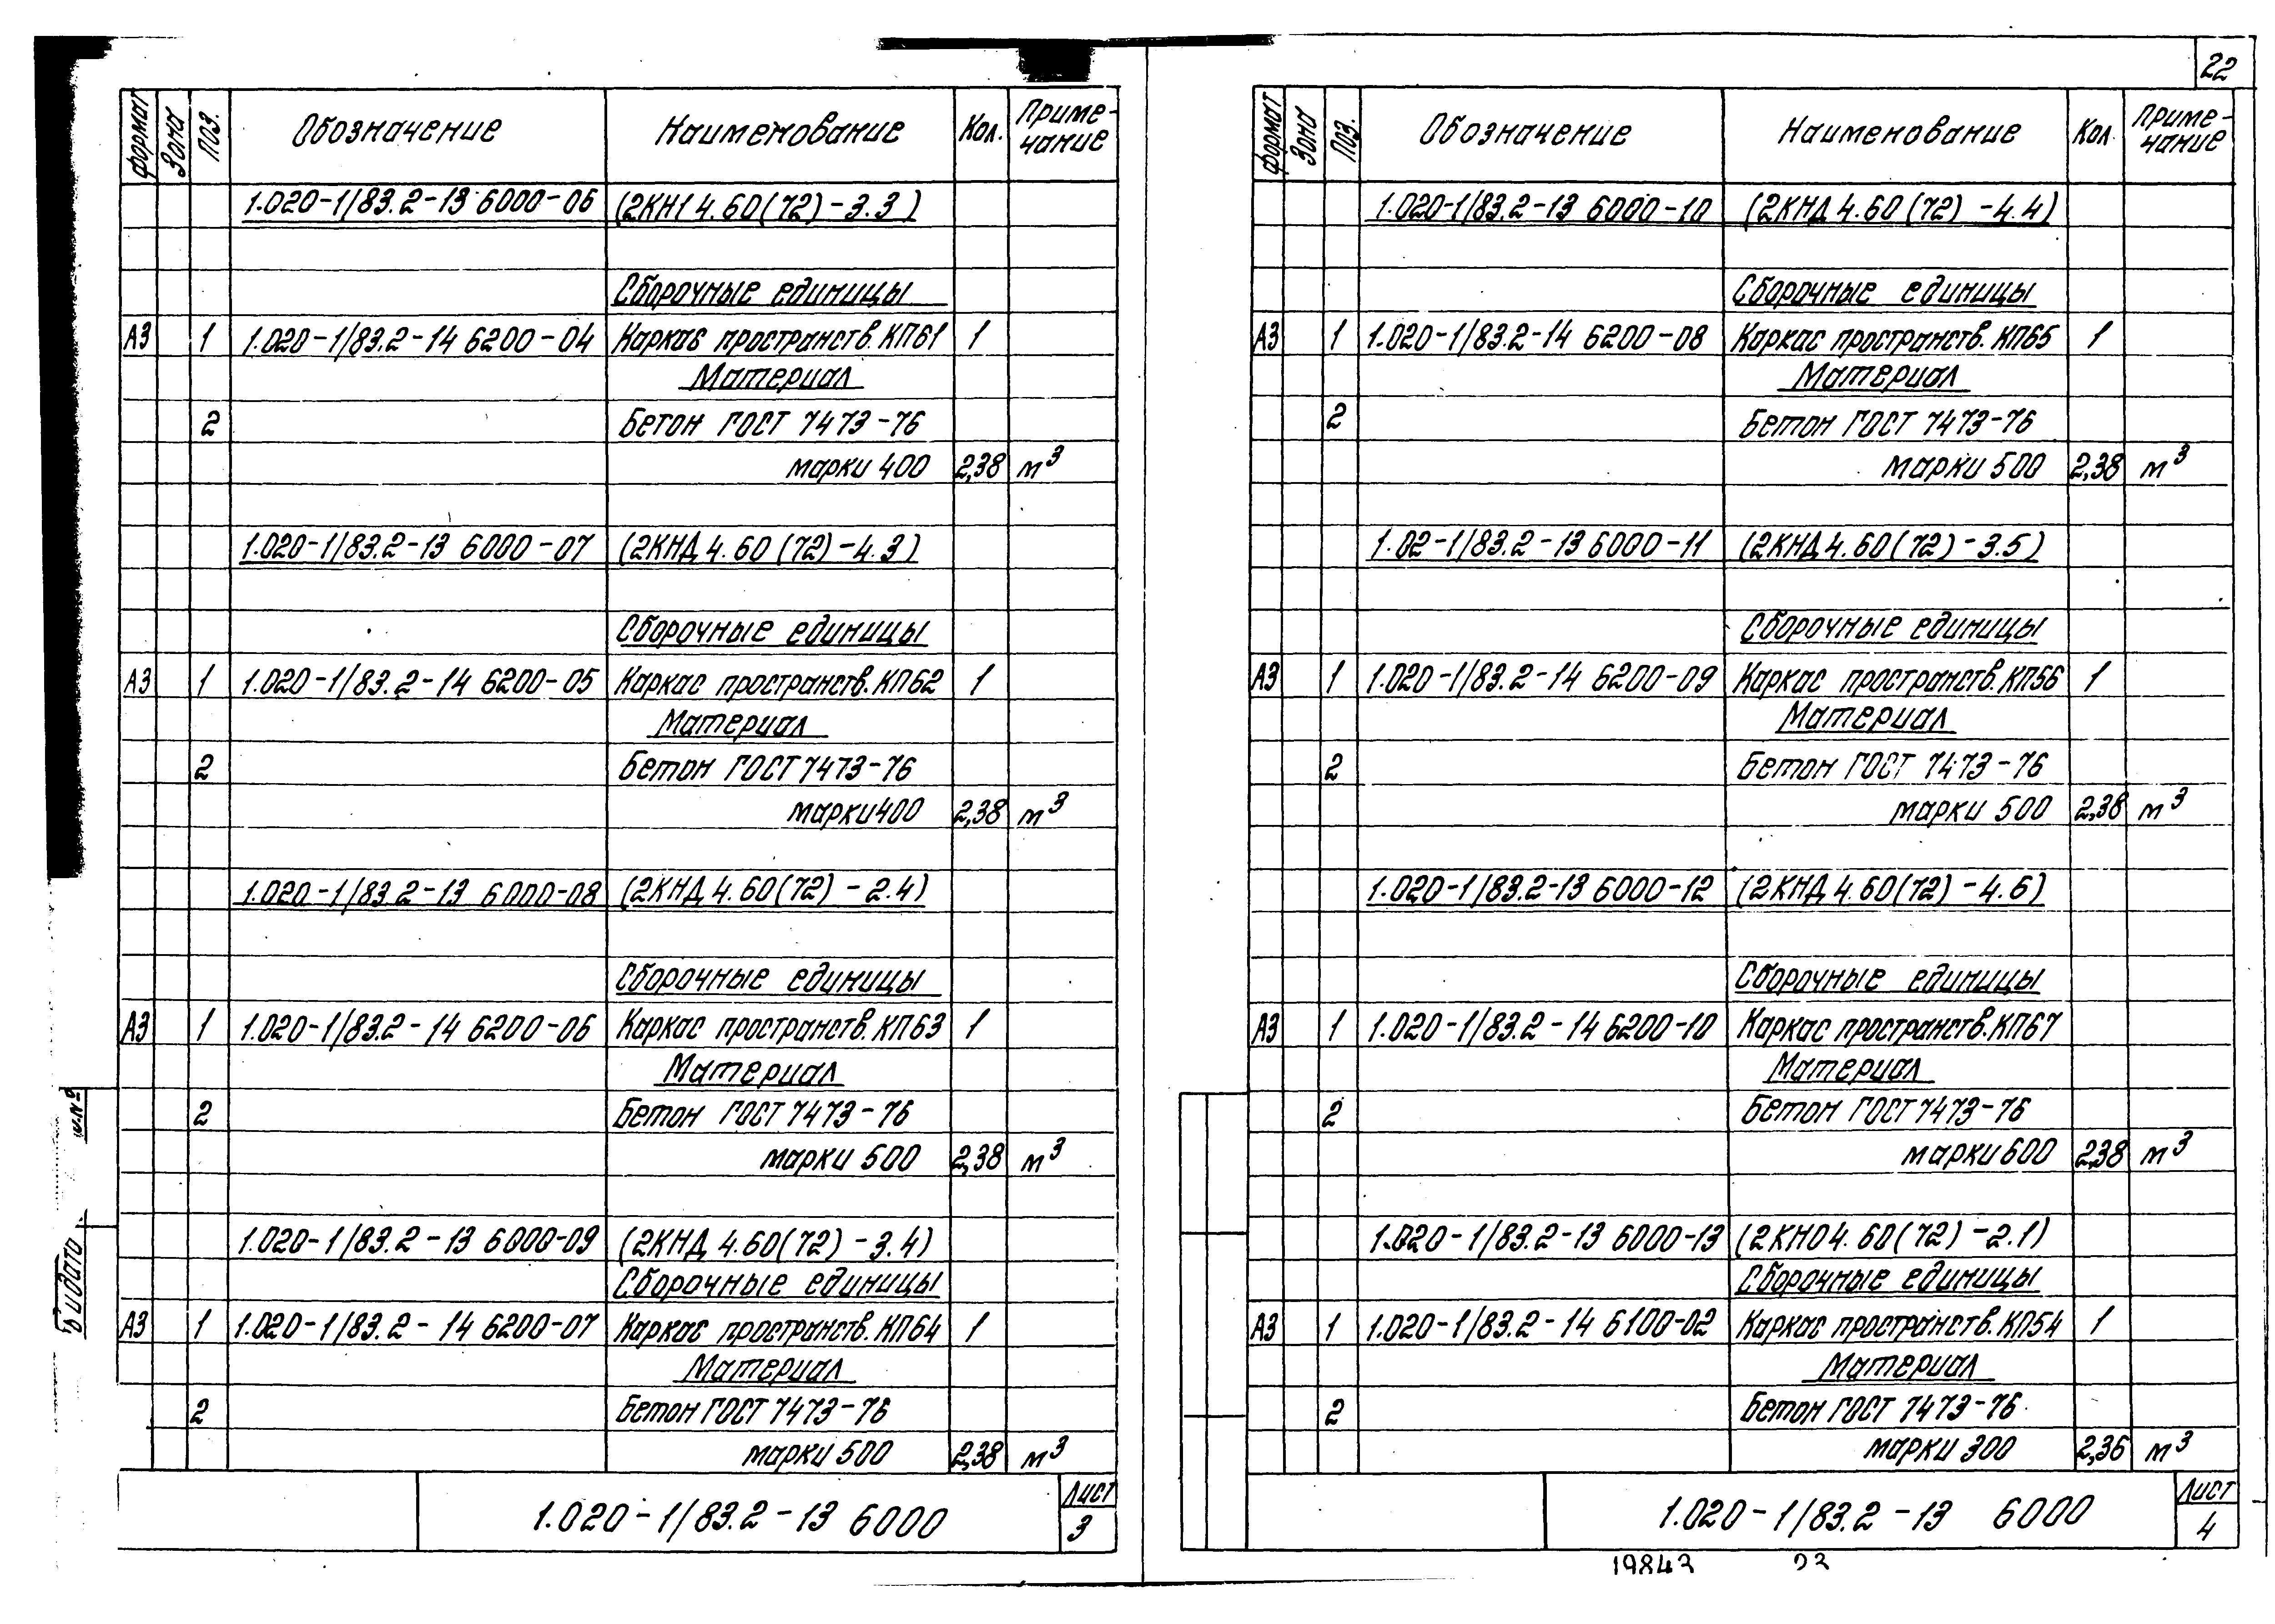 22
формат Зона Поз. Обозначение Наименование Кол. Приме-
чание
1.020-1/83.2-13 6000-06 (2КН1 4.60(72)-3.3)
Сборочные единицы
А3 1 1.020-1/83.2-14 6200-04 Каркас пространств. КП61 1
Материал
2 Бетон ГОСТ 7473-76
марки 400 2,38 м³
1.020-1/83.2-13 6000-07 (2КНД 4.60(72)-4.3)
Сборочные единицы
А3 1 1.020-1/83.2-14 6200-05 Каркас пространств. КП62 1
Материал
2 Бетон ГОСТ 7473-76
марки 400 2,38 м³
1.020-1/83.2-13 6000-08 (2КНД 4.60(72)-2.4)
Сборочные единицы
А3 1 1.020-1/83.2-14 6200-06 Каркас пространств. КП63 1
Материал
2 Бетон ГОСТ 7473-76
марки 500 2,38 м³
1.020-1/83.2-13 6000-09 (2КНД 4.60(72)-3.4)
Сборочные единицы
А3 1 1.020-1/83.2-14 6200-07 Каркас пространств. КП64 1
Материал
2 Бетон ГОСТ 7473-76
марки 500 2,38 м³
1.020-1/83.2-13 6000
Лист
3
формат Зона Поз. Обозначение Наименование Кол. Приме-
чание
1.020-1/83.2-13 6000-10 (2КНД 4.60(72)-4.4)
Сборочные единицы
А3 1 1.020-1/83.2-14 6200-08 Каркас пространств. КП65 1
Материал
2 Бетон ГОСТ 7473-76
марки 500 2,38 м³
1.02-1/83.2-13 6000-11 (2КНД 4.60(72)-3.5)
Сборочные единицы
А3 1 1.020-1/83.2-14 6200-09 Каркас пространств. КП56 1
Материал
2 Бетон ГОСТ 7473-76
марки 500 2,38 м³
1.020-1/83.2-13 6000-12 (2КНД 4.60(72)-4.6)
Сборочные единицы
А3 1 1.020-1/83.2-14 6200-10 Каркас пространств. КП67
Материал
2 Бетон ГОСТ 7473-76
марки 600 2,38 м³
1.020-1/83.2-13 6000-13 (2КНО4.60(72)-2.1)
Сборочные единицы
А3 1 1.020-1/83.2-14 6100-02 Каркас пространств. КП54 1
Материал
2 Бетон ГОСТ 7473-76
марки 300 2,36 м³
1.020-1/83.2-13 6000
Лист
4
19843 23